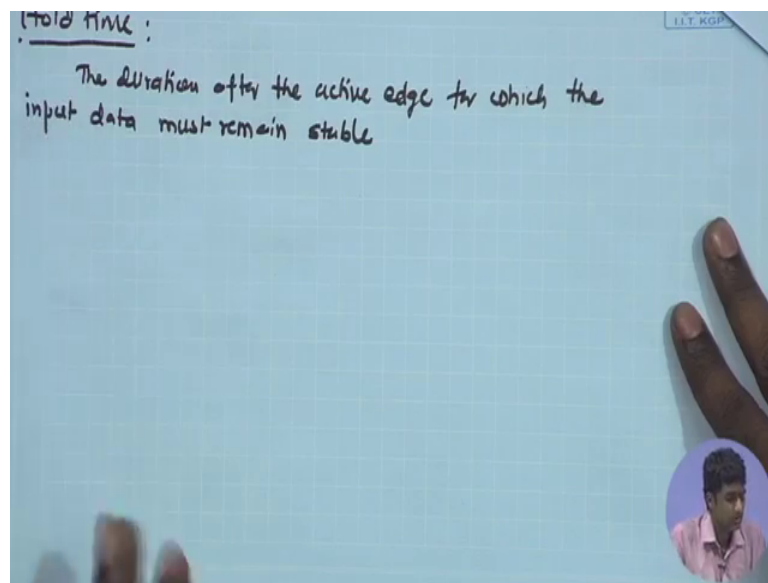 Hold time :
I.I.T. KGP
The duration after the active edge for which the
input data must remain stable